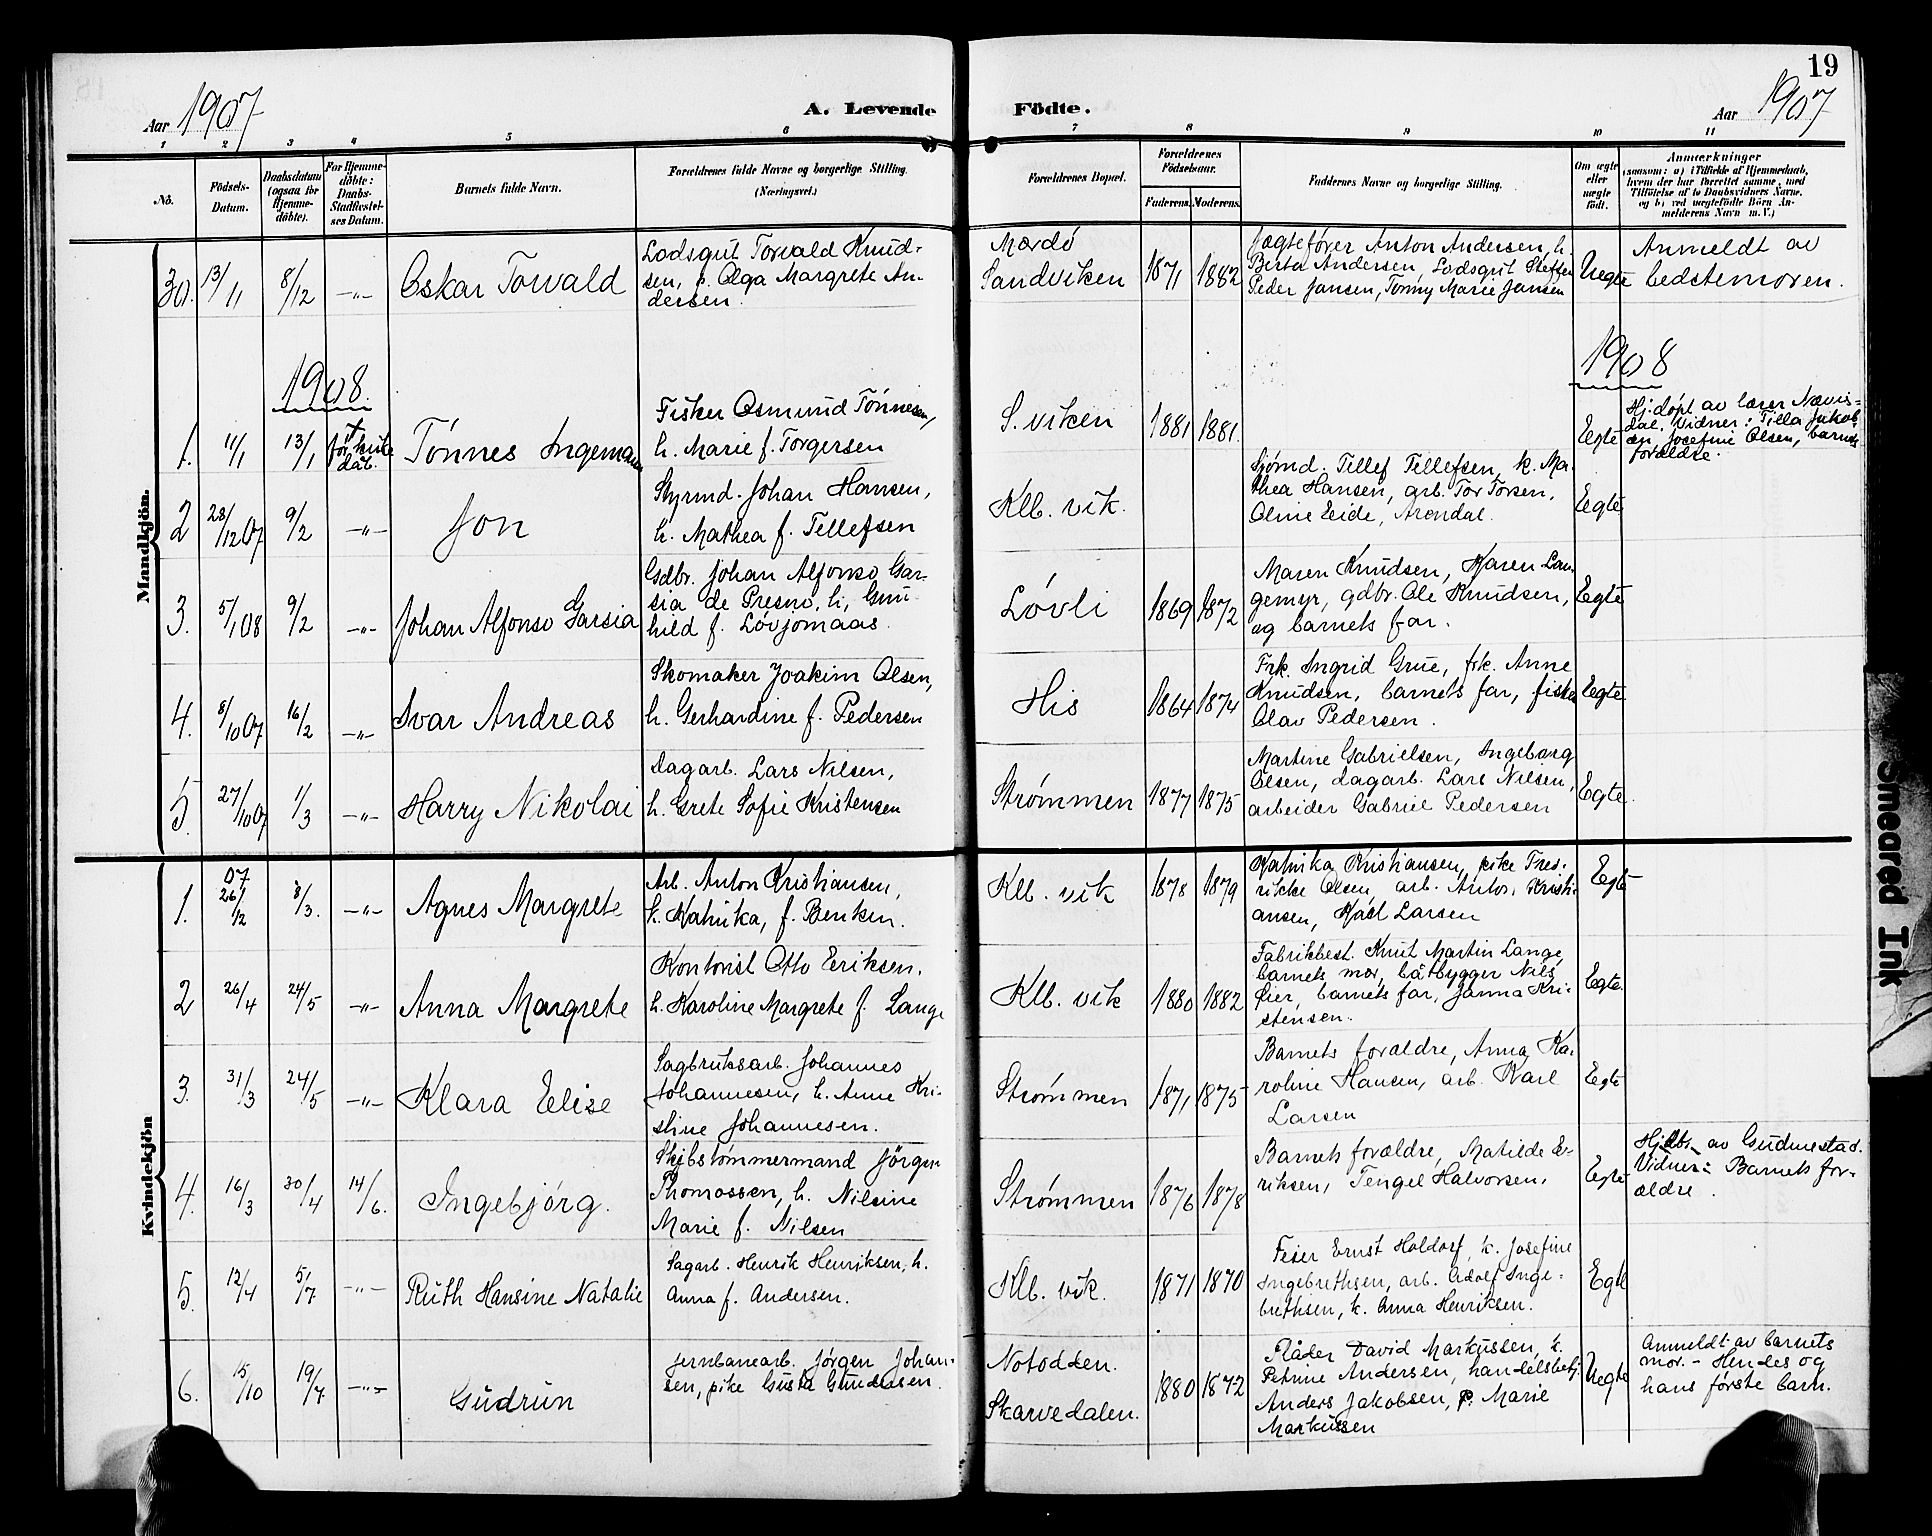 19
Aar 1907
A. Levende Födte.
Aar 1907
1 2 3 4 5 6 7 8 9 10 11
No.
Födsels-Datum.
Daabsdatum (ogsaa for Hjemme-döbte).
For Hjemme-döbte: Daabs-Stadfæstel-ses Datum.
Barnets fulde Navn.
Forældrenes fulde Navne og borgerlige Stilling.
(Næringsvei.)
Forældrenes Bopæl.
Forældrenes Födselsaar.
Faderens. Moderens.
Faddernes Navne og borgerlige Stilling.
Om ægte eller uægte födt.
Anmærkninger
(saasom: a) i Tilfælde af Hjemmedaab,
hvem der har forrettet samme, med
Tilföielse af to Daabsvidners Navne,
og b) ved uægtefödte Börn An-
melderens Navn m. V.)
Mandkjön.
30. 13/11 8/12 -"- Oskar Torvald
Lodsgut Torvald Knud-
sen, p. Olga Margrete An-
dersen.
Mærdö
Sandviken
1871 1882
Jægtefører Anton Andersen, h.
Berta Andersen, Lodsgut Steffen
Peder Jansen, Tonny Marie Jansen
Uegte
Anmeldt av
bedstemoren.
1908.
1908
1. 11/1 13/1 før kirke dåb. Tönnes Ingeman
Fisker Osmund Tönnesen,
h. Marie f. Torgersen
S. viken
1881 1881.
Egte
Hj. döpt av lærer Nævis-
dal. Vidner: Tilla Jakob-
sen, Josefine Olsen, barnets
forældre.
2 28/12 07 9/2 -"- Jon
Styrmd. Johan Hansen,
h. Mathea f. Tellefsen
Klb. vik.
Sjömd. Tellef Tellefsen, k. Ma-
thea Hansen, arb. Tor Torsen,
Oline Eide, Arendal.
Egte
3. 5/1 08 9/2 -"- Johan Alfonso Garsia
Gdbr. Johan Alfonso Gar-
sia de Presno, h. Gun-
hild f. Lövjomaas.
Lövli
1869 1872
Maren Knudsen, Karen Lan-
gemyr, gdbr. Ole Knudsen,
og barnets far.
Egte
4. 8/10 07 16/2 -"- Ivar Andreas
Skomaker Joakim Olsen,
h. Gerhardine f. Pedersen
His
1864 1874
Frk. Ingrid Grue, frk. Anne
Knudsen, barnets far, fisker
Olav Pedersen.
Egte
5. 27/10 07 1/3 -"- Harry Nikolai
Dagarb. Lars Nilsen,
h. Grete Sofie Kristensen
Strømmen
1877 1875
Martine Gabrielsen, Ingeborg
Olsen, dagarb. Lars Nilsen,
arbeider Gabriel Pedersen
Egte.
Kvindekjön
1. 07 26/12 8/3. -"- Agnes Margrete
Arb. Anton Kristiansen,
h. Katinka, f. Benkin.
Klb. vik
1878 1879
Katinka Kristiansen, pike Fred-
rikke Olsen, arb. Anton Kristi-
ansen, Karl Larsen
Egte
2 26/4 24/5 -"- Anna Margrete
Kontorist Otto Eriksen,
h. Karoline Margrete f. Lange
Klb. vik
1880 1882
Fabrikbest. Knut Martin Lange,
barnets mor, båtbygger Nils
Eier, barnets far, Janna Kri-
stensen.
Egte.
3. 31/3 24/5 -"- Klara Elise
Sagbruksarb. Johannes
Johannesen, h. Anne Kri-
stine Johannesen.
Strømmen
1871 1875
Barnets forældre, Anna Ka-
roline Hansen, arb. Karl
Larsen
Egte
4. 16/3 30/4 14/6. Ingebjörg.
Skibstömmermand Jörgen
Thomassen, h. Nilsine
Marie f. Nilsen
Strømmen
1876 1878
Barnets forældre, Matilde Er-
iksen, Tengel Halvorsen,
Egte
Hj. dbt. av Gudmestad.
Vidner: Barnets for-
ældre.
5. 12/4 5/7 -"- Ruth Hansine Natalie
Sagarb. Henrik Henriksen, h.
Anna f. Andersen.
Klb. vik.
1871 1870
Feier Ernst Holdorf, k. Josefine
Ingebrethsen, arb. Adolf Inge-
brethsen, k. Anna Henriksen.
Egte
6. 15/10 19/7 -"- Gudrun
Jernbanearb. Jørgen Johan-
sen, pike Gusta Gundersen.
Notodden.
Skarvedalen.
1880 1872
Flåder David Markussen, k.
Petrine Andersen, handelsbetj.
Anders Jakobsen, p. Marie
Markussen
Uegte
Anmeldt av barnets
mor. - Hendes og
hans første barn.
Smeared Ink